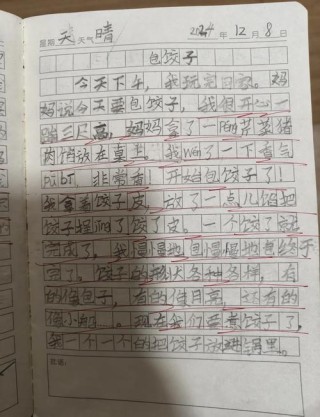 星期天 天气晴 2024年12月8日
包饺子
今天下午，我玩完回家。妈
妈说今天要包饺子，我很开心一
蹦三尺高，妈妈拿了一pén芹菜猪
肉馅放在桌上。我wén了一下香气
pū bí，非常香！开始包饺子了！
我拿着饺子皮，放了一点儿馅把
饺子捏jǐng了饺了皮。一个饺子就
完成了。我慢慢地包慢慢地包终于
完了。饺子的形状各种各样，有
的像包子，有的像月亮，还有的
像小船。现在我们要煮饺子了，
我一个一个的把饺子放进锅里。